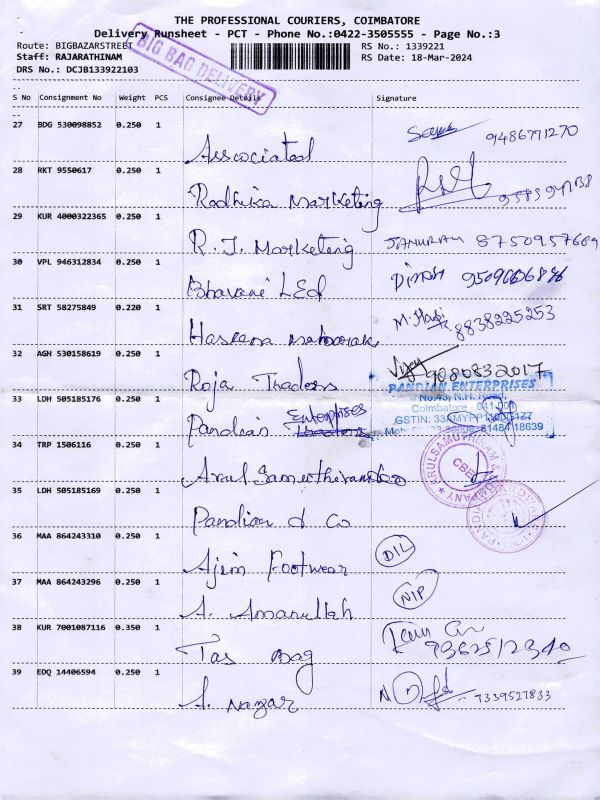 THE PROFESSIONAL COURIERS, COIMBATORE
Delivery Runsheet - PCT - Phone No.:0422-3505555 - Page No.:3
Route: BIGBAZARSTREET RS No.: 1339221
Staff: RAJARATHINAM RS Date: 18-Mar-2024
DRS No.: DCJB133922103
BIG BAG DELIVERY
S No Consignment No Weight PCS Consignee Details Signature
27 BDG 530098852 0.250 1 Associated 9486771270
28 RKT 9550617 0.250 1 Radhika Marketing
29 KUR 4000322365 0.250 1 R.J. Marketing JANURAM 8750957689
30 VPL 946312834 0.250 1 Bhavani LEd
31 SRT 58275849 0.220 1 Haseena 8838225253
32 AGH 530158619 0.250 1 Roja Traders Vijay 9080832017
33 LDH 505185176 0.250 1 Pandian Enterprises
PANDIAN ENTERPRISES
No.43, N.H. Road,
Coimbatore - 641 001
GSTIN: 33
34 TRP 1506116 0.250 1
ARULSAMUTHIRAM & COMPANY
CBE
35 LDH 505185169 0.250 1 Pandian & Co
36 MAA 864243310 0.250 1 Ajim Footwear DIL
37 MAA 864243296 0.250 1 A. Amanullah NIP
38 KUR 7001087116 0.350 1 Tas Bag 9362512340
39 EDQ 14406594 0.250 1 A. Nazar 9339527833